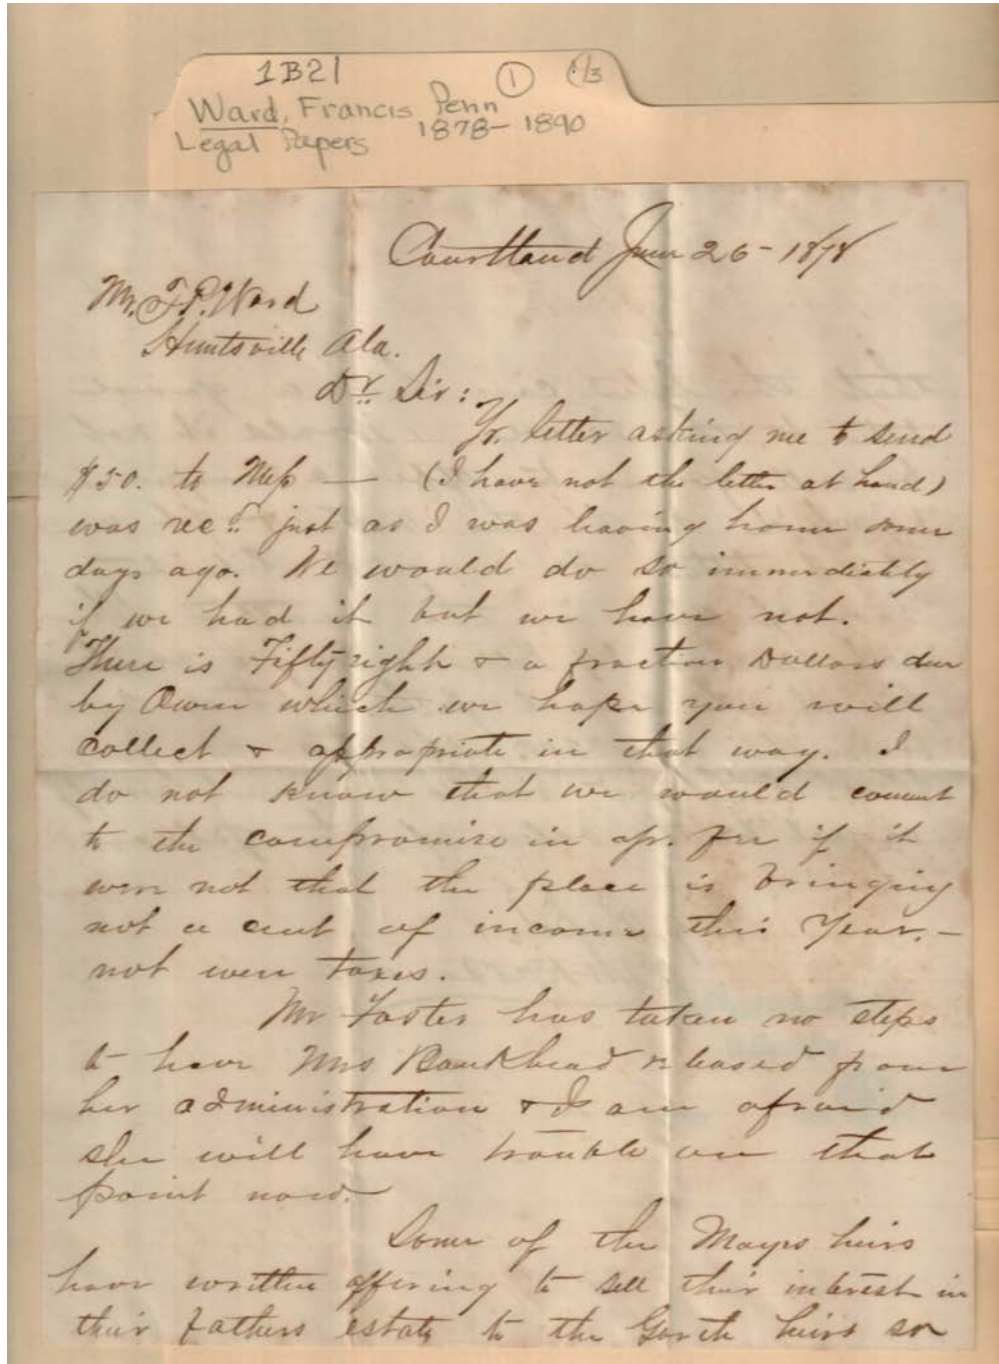 1B21 ① 1/3
Ward, Francis Penn
Legal Papers 1878-1890
Courtland June 26 - 1878
Mr. F.P. Ward
Huntsville Ala.
Dr Sir:
Yr. letter asking me to send
$50. to Mess — (I have not the letter at hand)
was recd just as I was leaving home some
days ago. We would do so immediately
if we had it but we have not.
There is Fifty eight & a fraction Dollars due
by Owen which we hope you will
collect & appropriate in that way. I
do not know that we would consent
to the compromise in if it
were not that the place is bringing
not a cent of income this Year, -
not even taxes.
Mr Foster has taken no steps
to have Mrs Bankhead released from
her administration & I am afraid
she will have trouble on that
point now.
Some of the Mayes heirs
have written offering to sell their interest in
their fathers estate to the Garth heirs so